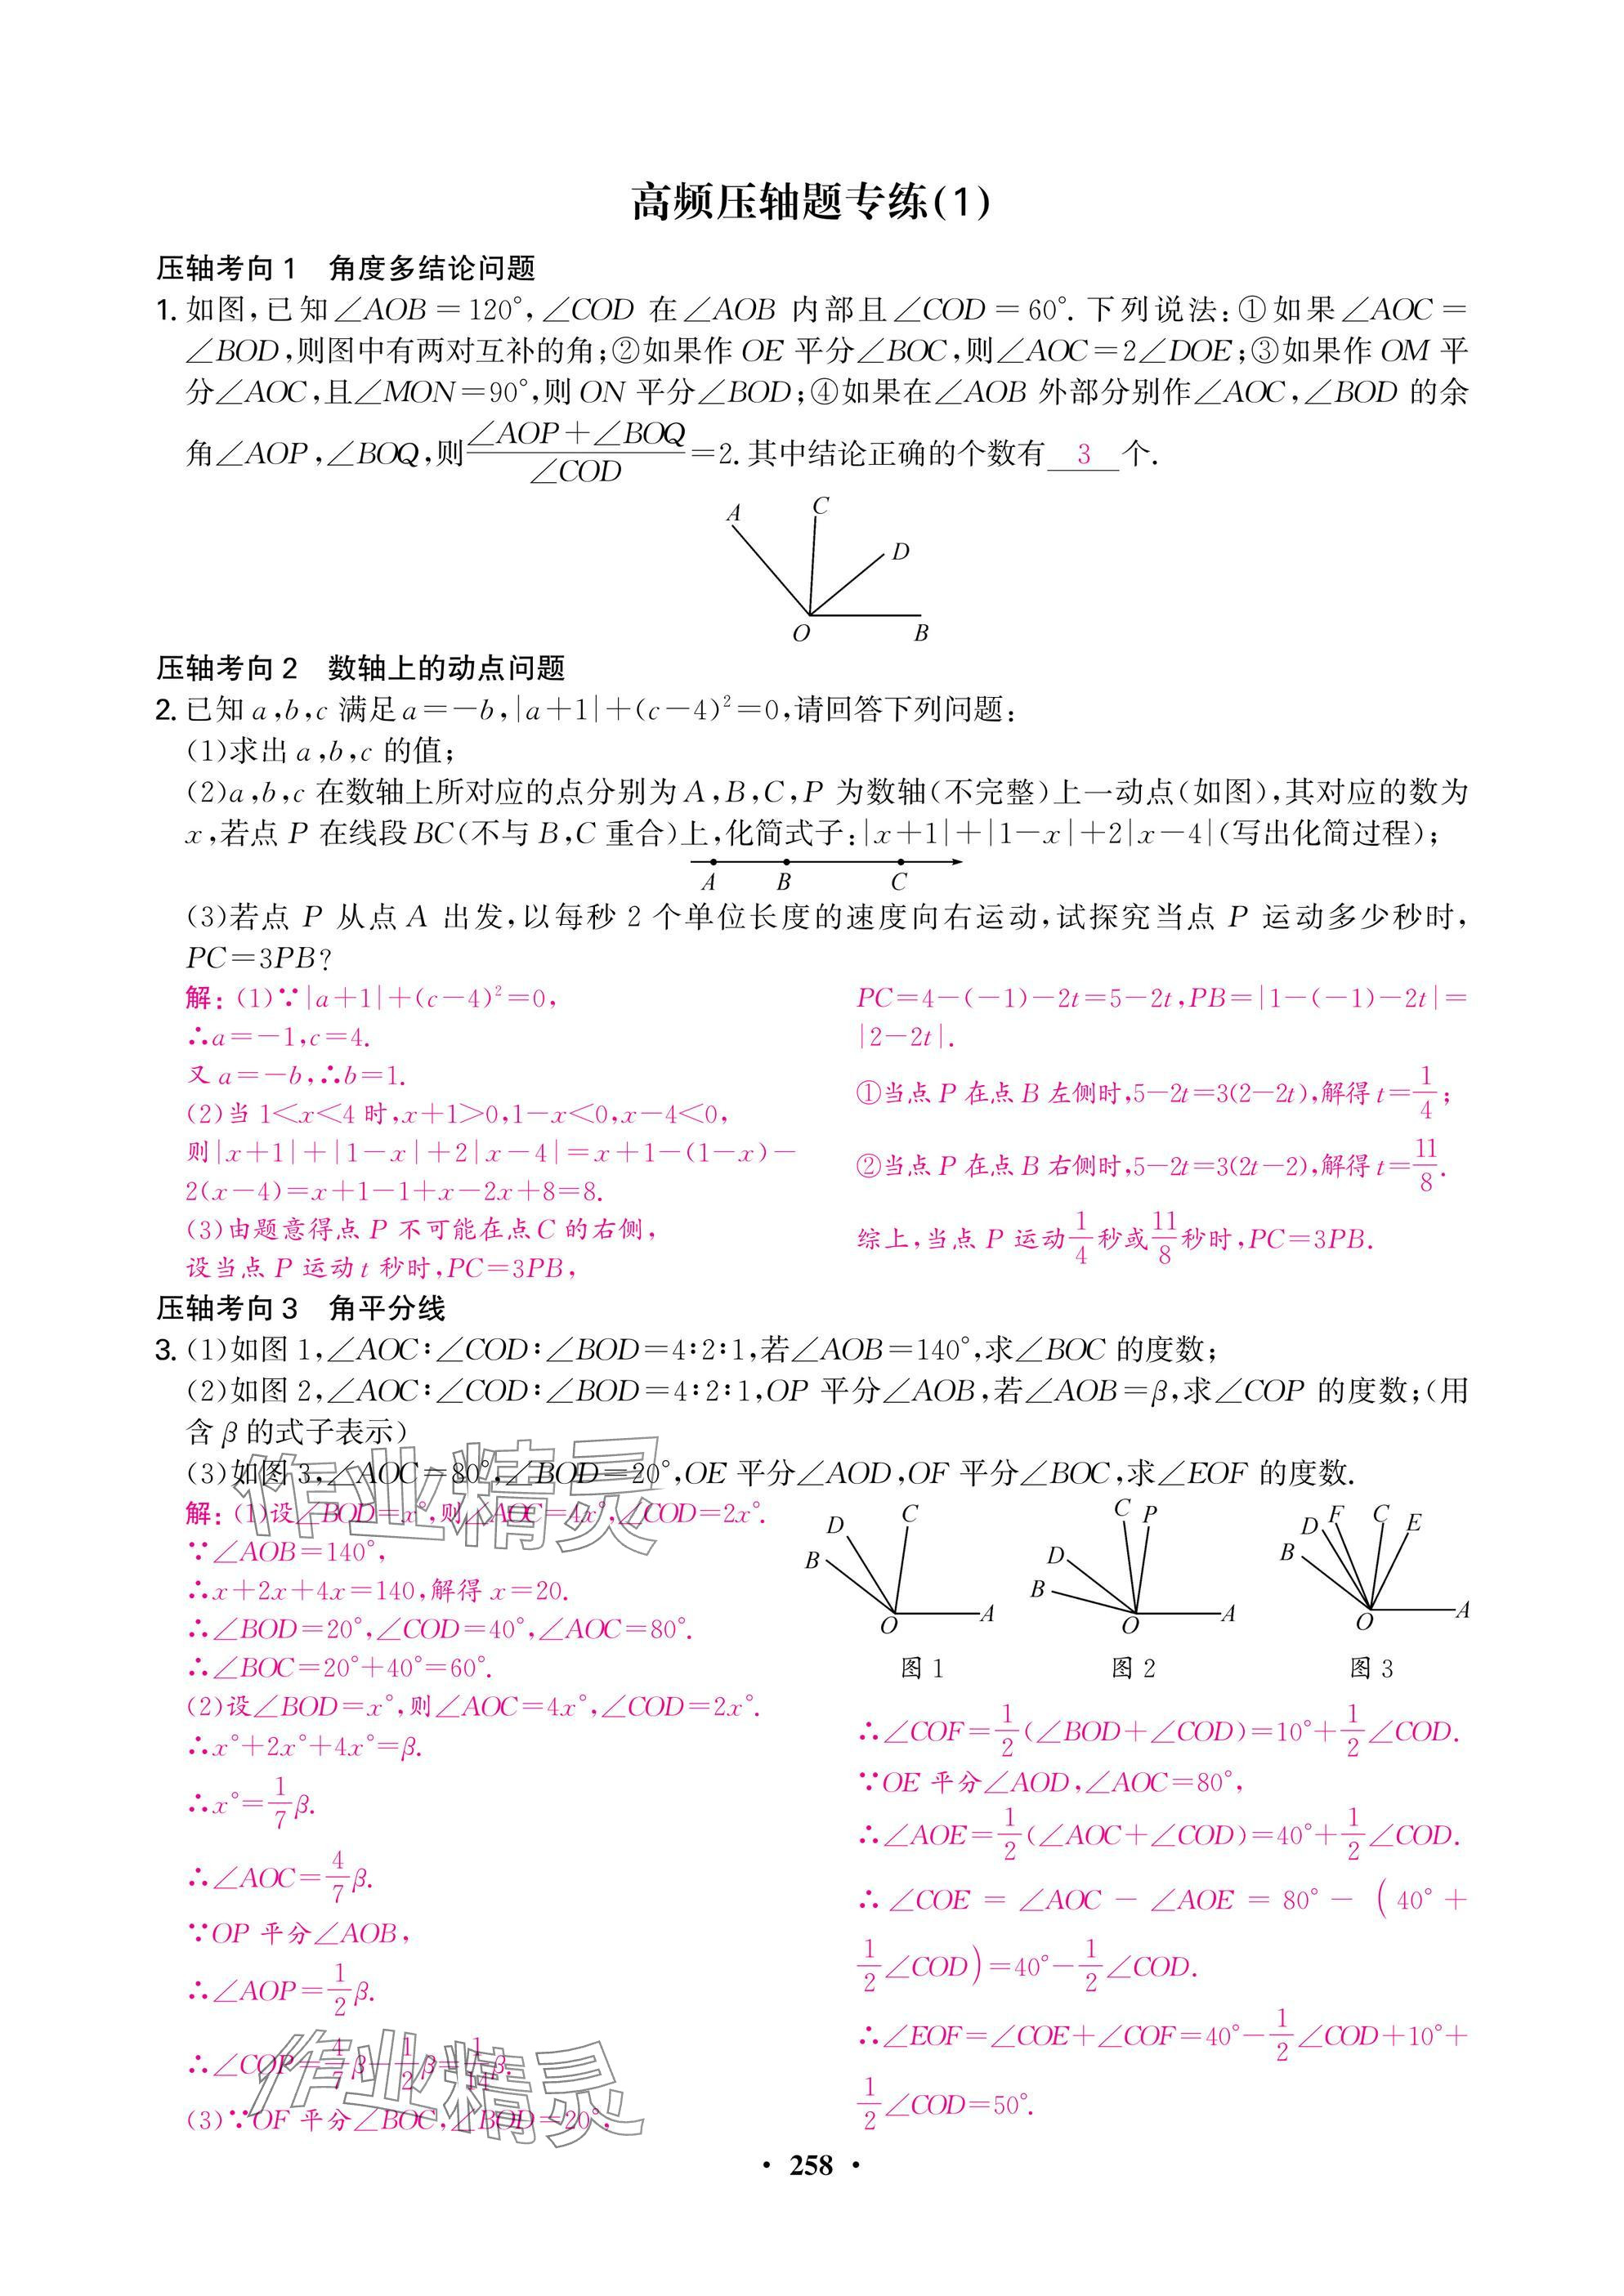 高频压轴题专练(1)
压轴考向1　角度多结论问题
1. 如图,已知∠AOB=120°,∠COD 在∠AOB 内部且∠COD=60°. 下列说法:①如果∠AOC=
∠BOD,则图中有两对互补的角;②如果作 OE 平分∠BOC,则∠AOC=2∠DOE;③如果作 OM 平
分∠AOC,且∠MON=90°,则 ON 平分∠BOD;④如果在∠AOB 外部分别作∠AOC,∠BOD 的余
角∠AOP,∠BOQ,则(∠AOP+∠BOQ)/∠COD=2. 其中结论正确的个数有 3 个.
A
C
D
O
B
压轴考向2　数轴上的动点问题
2. 已知 a,b,c 满足 a=-b,|a+1|+(c-4)²=0,请回答下列问题:
(1)求出 a,b,c 的值;
(2)a,b,c 在数轴上所对应的点分别为 A,B,C,P 为数轴(不完整)上一动点(如图),其对应的数为
x,若点 P 在线段 BC(不与 B,C 重合)上,化简式子:|x+1|+|1-x|+2|x-4|(写出化简过程);
A B C
(3)若点 P 从点 A 出发,以每秒 2 个单位长度的速度向右运动,试探究当点 P 运动多少秒时,
PC=3PB?
解:(1)∵|a+1|+(c-4)²=0,
∴a=-1,c=4.
又 a=-b,∴b=1.
(2)当 1<x<4 时,x+1>0,1-x<0,x-4<0,
则|x+1|+|1-x|+2|x-4|=x+1-(1-x)-
2(x-4)=x+1-1+x-2x+8=8.
(3)由题意得点 P 不可能在点 C 的右侧,
设当点 P 运动 t 秒时,PC=3PB,
PC=4-(-1)-2t=5-2t,PB=|1-(-1)-2t|=
|2-2t|.
①当点 P 在点 B 左侧时,5-2t=3(2-2t),解得 t=1/4;
②当点 P 在点 B 右侧时,5-2t=3(2t-2),解得 t=11/8.
综上,当点 P 运动1/4秒或11/8秒时,PC=3PB.
压轴考向3　角平分线
3. (1)如图 1,∠AOC∶∠COD∶∠BOD=4∶2∶1,若∠AOB=140°,求∠BOC 的度数;
(2)如图 2,∠AOC∶∠COD∶∠BOD=4∶2∶1,OP 平分∠AOB,若∠AOB=β,求∠COP 的度数;(用
含 β 的式子表示)
(3)如图 3,∠AOC=80°,∠BOD=20°,OE 平分∠AOD,OF 平分∠BOC,求∠EOF 的度数.
作业精灵
解:(1)设∠BOD=x°,则∠AOC=4x°,∠COD=2x°.
∵∠AOB=140°,
∴x+2x+4x=140,解得 x=20.
∴∠BOD=20°,∠COD=40°,∠AOC=80°.
∴∠BOC=20°+40°=60°.
(2)设∠BOD=x°,则∠AOC=4x°,∠COD=2x°.
∴x°+2x°+4x°=β.
∴x°=1/7β.
∴∠AOC=4/7β.
∵OP 平分∠AOB,
∴∠AOP=1/2β.
∴∠COP=4/7β-1/2β=1/14β.
(3)∵OF 平分∠BOC,∠BOD=20°,
作业精灵
D C B O A
图 1
C P D B O A
图 2
D F C E B O A
图 3
∴∠COF=1/2(∠BOD+∠COD)=10°+1/2∠COD.
∵OE 平分∠AOD,∠AOC=80°,
∴∠AOE=1/2(∠AOC+∠COD)=40°+1/2∠COD.
∴∠COE=∠AOC-∠AOE=80°-(40°+
1/2∠COD)=40°-1/2∠COD.
∴∠EOF=∠COE+∠COF=40°-1/2∠COD+10°+
1/2∠COD=50°.
· 258 ·